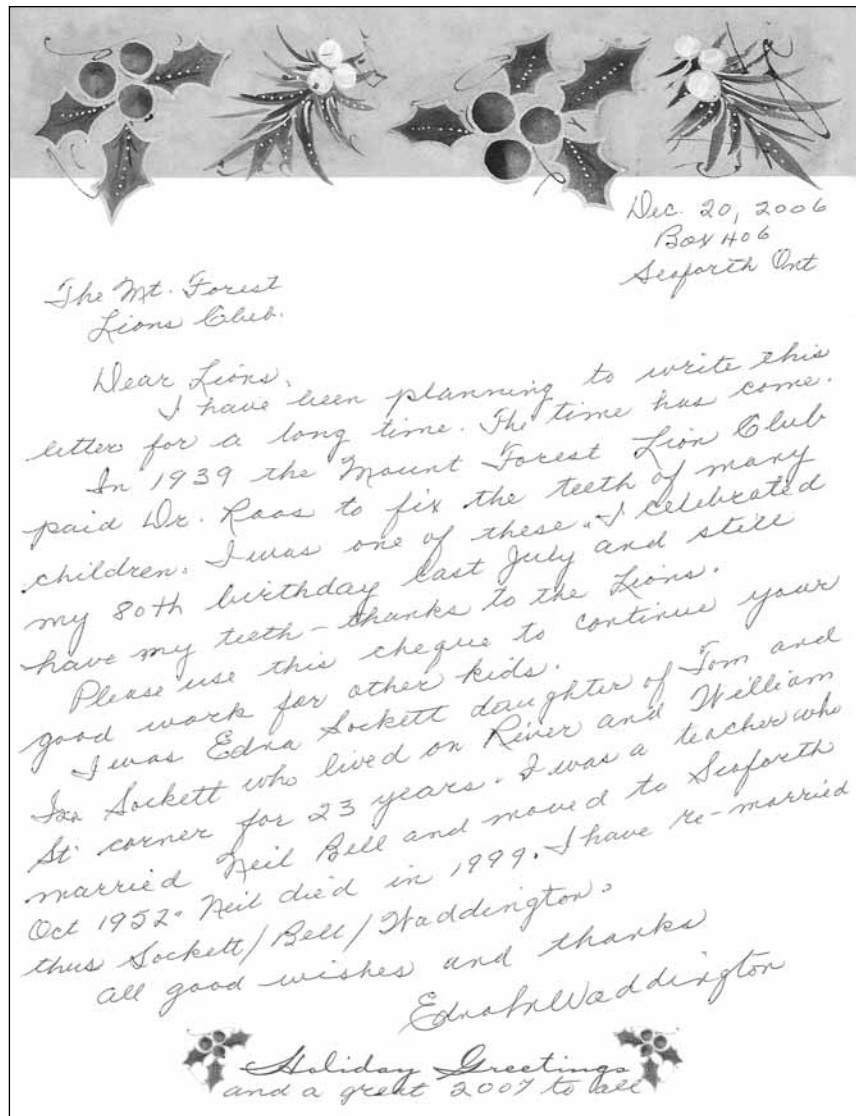 Dec. 20, 2006
Box 406
Seaforth Ont
The Mt. Forest
Lions Club.
Dear Lions,
I have been planning to write this
letter for a long time. The time has come.
In 1939 the Mount Forest Lion Club
paid Dr. Raas to fix the teeth of many
children. I was one of these. I celebrated
my 80th birthday last July and still
have my teeth - thanks to the Lions.
Please use this cheque to continue your
good work for other kids.
I was Edna Sockett daughter of Tom and
Sockett who lived on River and William
St. corner for 23 years. I was a teacher who
married Neil Bell and moved to Seaforth
Oct 1952. Neil died in 1999. I have re-married
thus Sockett/Bell/Waddington.
All good wishes and thanks
Edna Waddington
Holiday Greetings
and a great 2007 to all